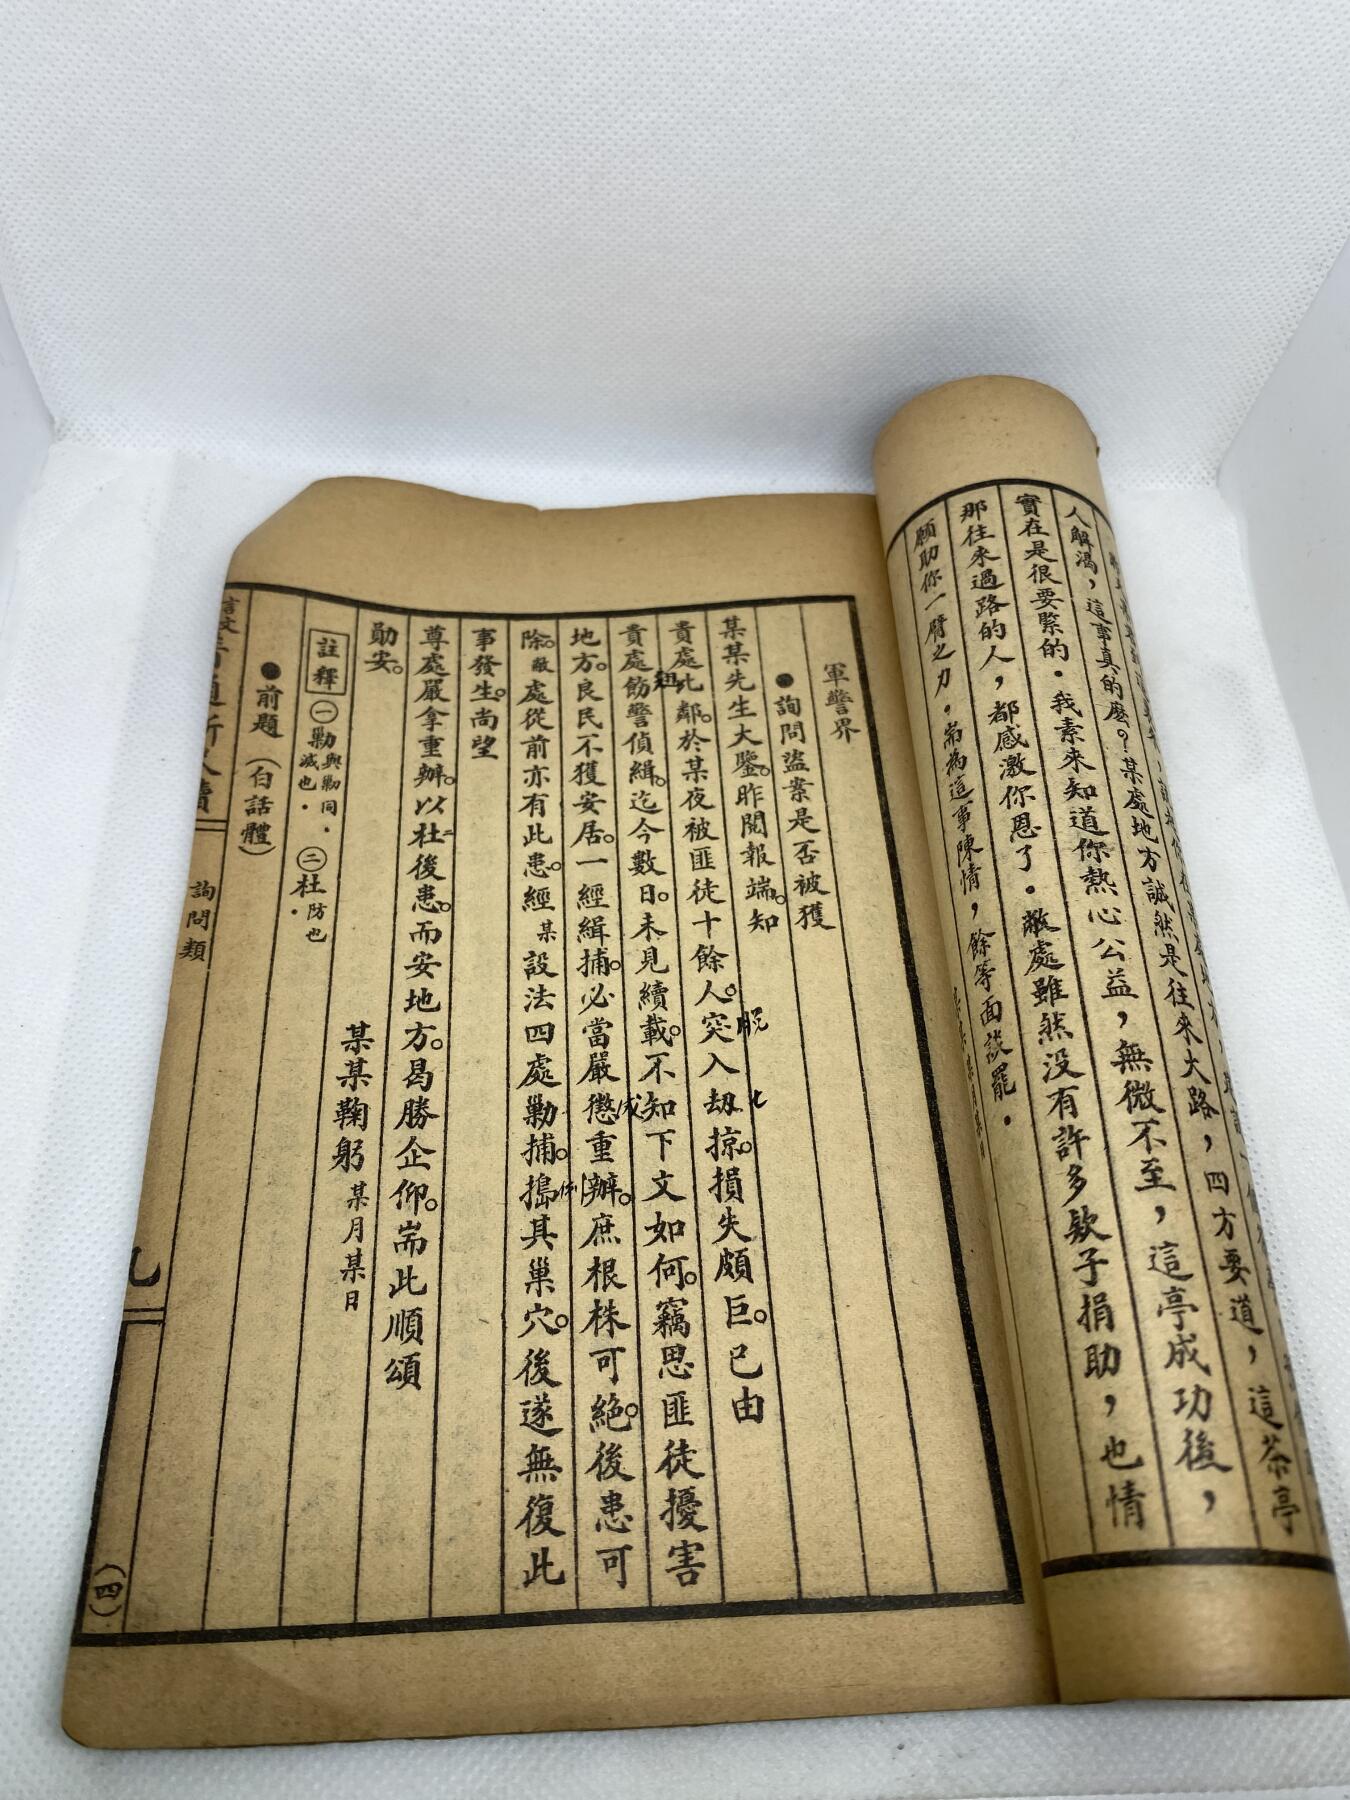 人解渴，這事真的麼？某處地方誠然是往來大路，四方要道，這茶亭
實在是很要緊的．我素來知道你熱心公益，無微不至，這亭成功後，
那往來過路的人，都感激你恩了．敝處雖然没有許多欵子捐助，也情
願助你一臂之力．耑為這事陳情，餘等面談罷．
軍警界
●詢問盜案是否被獲
某某先生大鑒。昨閱報端。知
貴處北鄰。於某夜被匪徒十餘人。突入刼掠。損失頗巨。已由
貴處飭警偵緝。迄今數日。未見續載。不知下文如何。竊思匪徒擾害
地方。良民不獲安居。一經緝捕。必當嚴懲重辦。庶根株可絕。後患可
除。敝處從前亦有此患。經某設法四處勦捕。搗其巢穴。後遂無復此
事發生。尚望
尊處嚴拿重辦。以杜二後患。而安地方。曷勝企仰。耑此順頌
勛安。
某某鞠躬 某月某日
註釋 ㊀勦 與剿同．滅也． ㊁杜 防也．
●前題（白話體）
詢問類
九
（四）